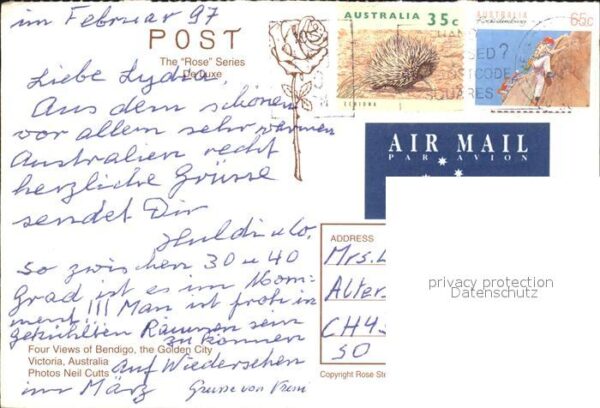 im Februar 97
POST
The "Rose" Series
De Luxe
AUSTRALIA 35c
ECHIDNA
AUSTRALIA 65c
Liebe Lydia,
Aus dem schönen
vor allem sehr warmen
Australien recht
herzliche Grüsse
sendet Dir
AIR MAIL
PAR AVION
so zwischen 30 u 40
Grad ist es im Mom-
ment!!! Man ist froh in
gekühlten Räumen sein
zu können
Auf Wiedersehen
im März
Grüsse von
ADDRESS
Mrs. L
Alter
CH4
SO
privacy protection
Datenschutz
Four Views of Bendigo, the Golden City
Victoria, Australia
Photos Neil Cutts
Copyright Rose Ste